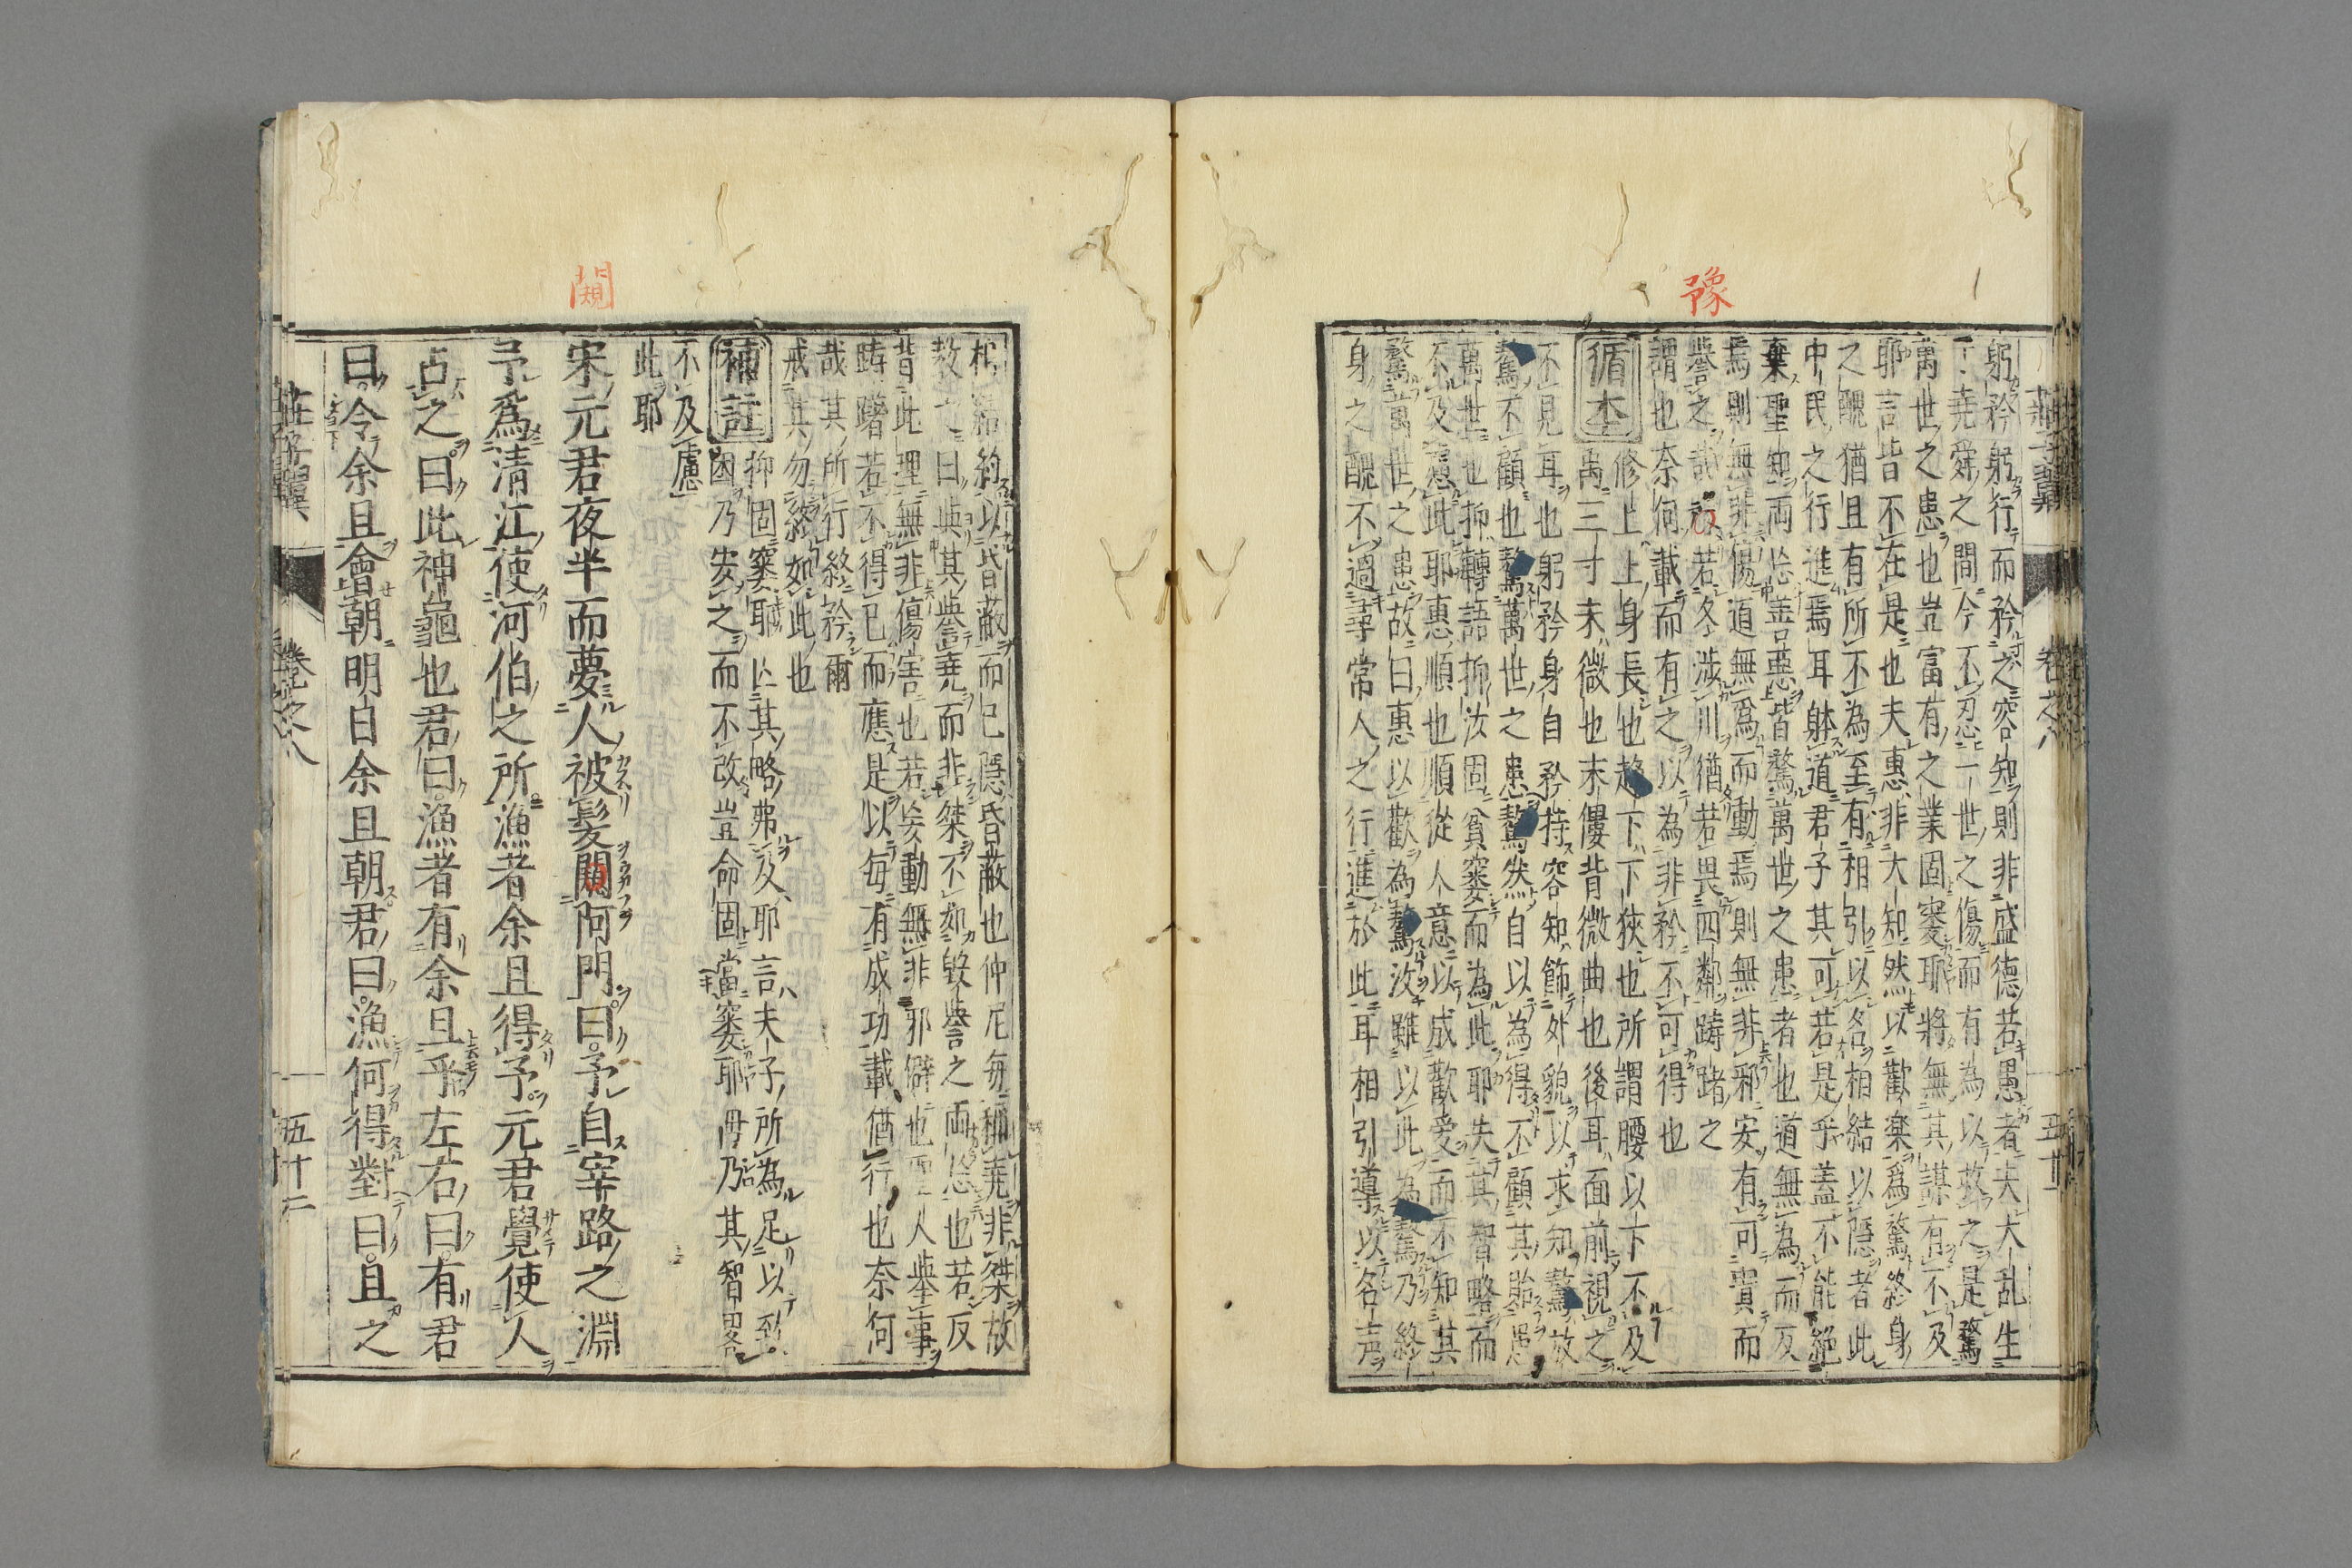 豫
躬矜躬行而矜之容知則非盛德若愚者夫大乱生
堯舜之間今不忍一世之傷而有為以敖之是驁
萬世之患也豈富有之業固窶耶將無其謀有不及
耶言皆不在是也夫惠非大知然以歡楽為驁終身
之醜猶且有所不為至有相引以名相結以隱者此
中民之行進焉耳躰道君子其可若是乎盖不能絶
棄聖知両忘善惡皆驁萬世之患者也道無為而反
焉則無非傷道無為而動焉則無非邪安有可貴而
譽之哉若冬涉川猶若畏四鄰躊躇之
謂也奈何載而有之以為非矜不可得也
循本
修上上身長也趍下下狹也所謂腰以下不及
禹三寸末微也末僂背微曲也後耳面前視之
不見耳也躬矜身自矜持容知飾外貌以求知驁放
驁不顧也驁萬世之患驁然自以為得不顧其貽患
萬世也抑轉語抑汝固貧窶而為此耶失其智略而
不及慮此耶惠順也順從人意以成歡愛而不知其
驁萬世之患故曰惠以歡為驁汝雖以此為驁乃終
身之醜不過尋常人之行進於此耳相引導以名声
莊子翼
卷之八
相結約以昏蔽而已隱昏蔽也仲尼毎稱堯非桀故
教之曰與其譽堯而非桀不如毀譽之両忘也若反
背此理無非傷害也若妄動無非邪僻也聖人舉事
躊躇若不得已而應是以毎有成功載猶行也奈何
哉其所行終矜爾
戒其勿終如此也
補註
抑固窶耶亡其略弗及耶言夫子所為足以致
困乃安之而不改豈命固當窶耶毋乃其智畧
不及慮
此耶
閲
宋元君夜半而夢人被髮闚阿門曰予自宰路之淵
予爲清江使河伯之所漁者余且得予元君覺使人
占之曰此神龜也君曰漁者有余且乎左右曰有君
曰令余且會朝明日余且朝君曰漁何得對曰且之
莊子翼
卷之八
五十二